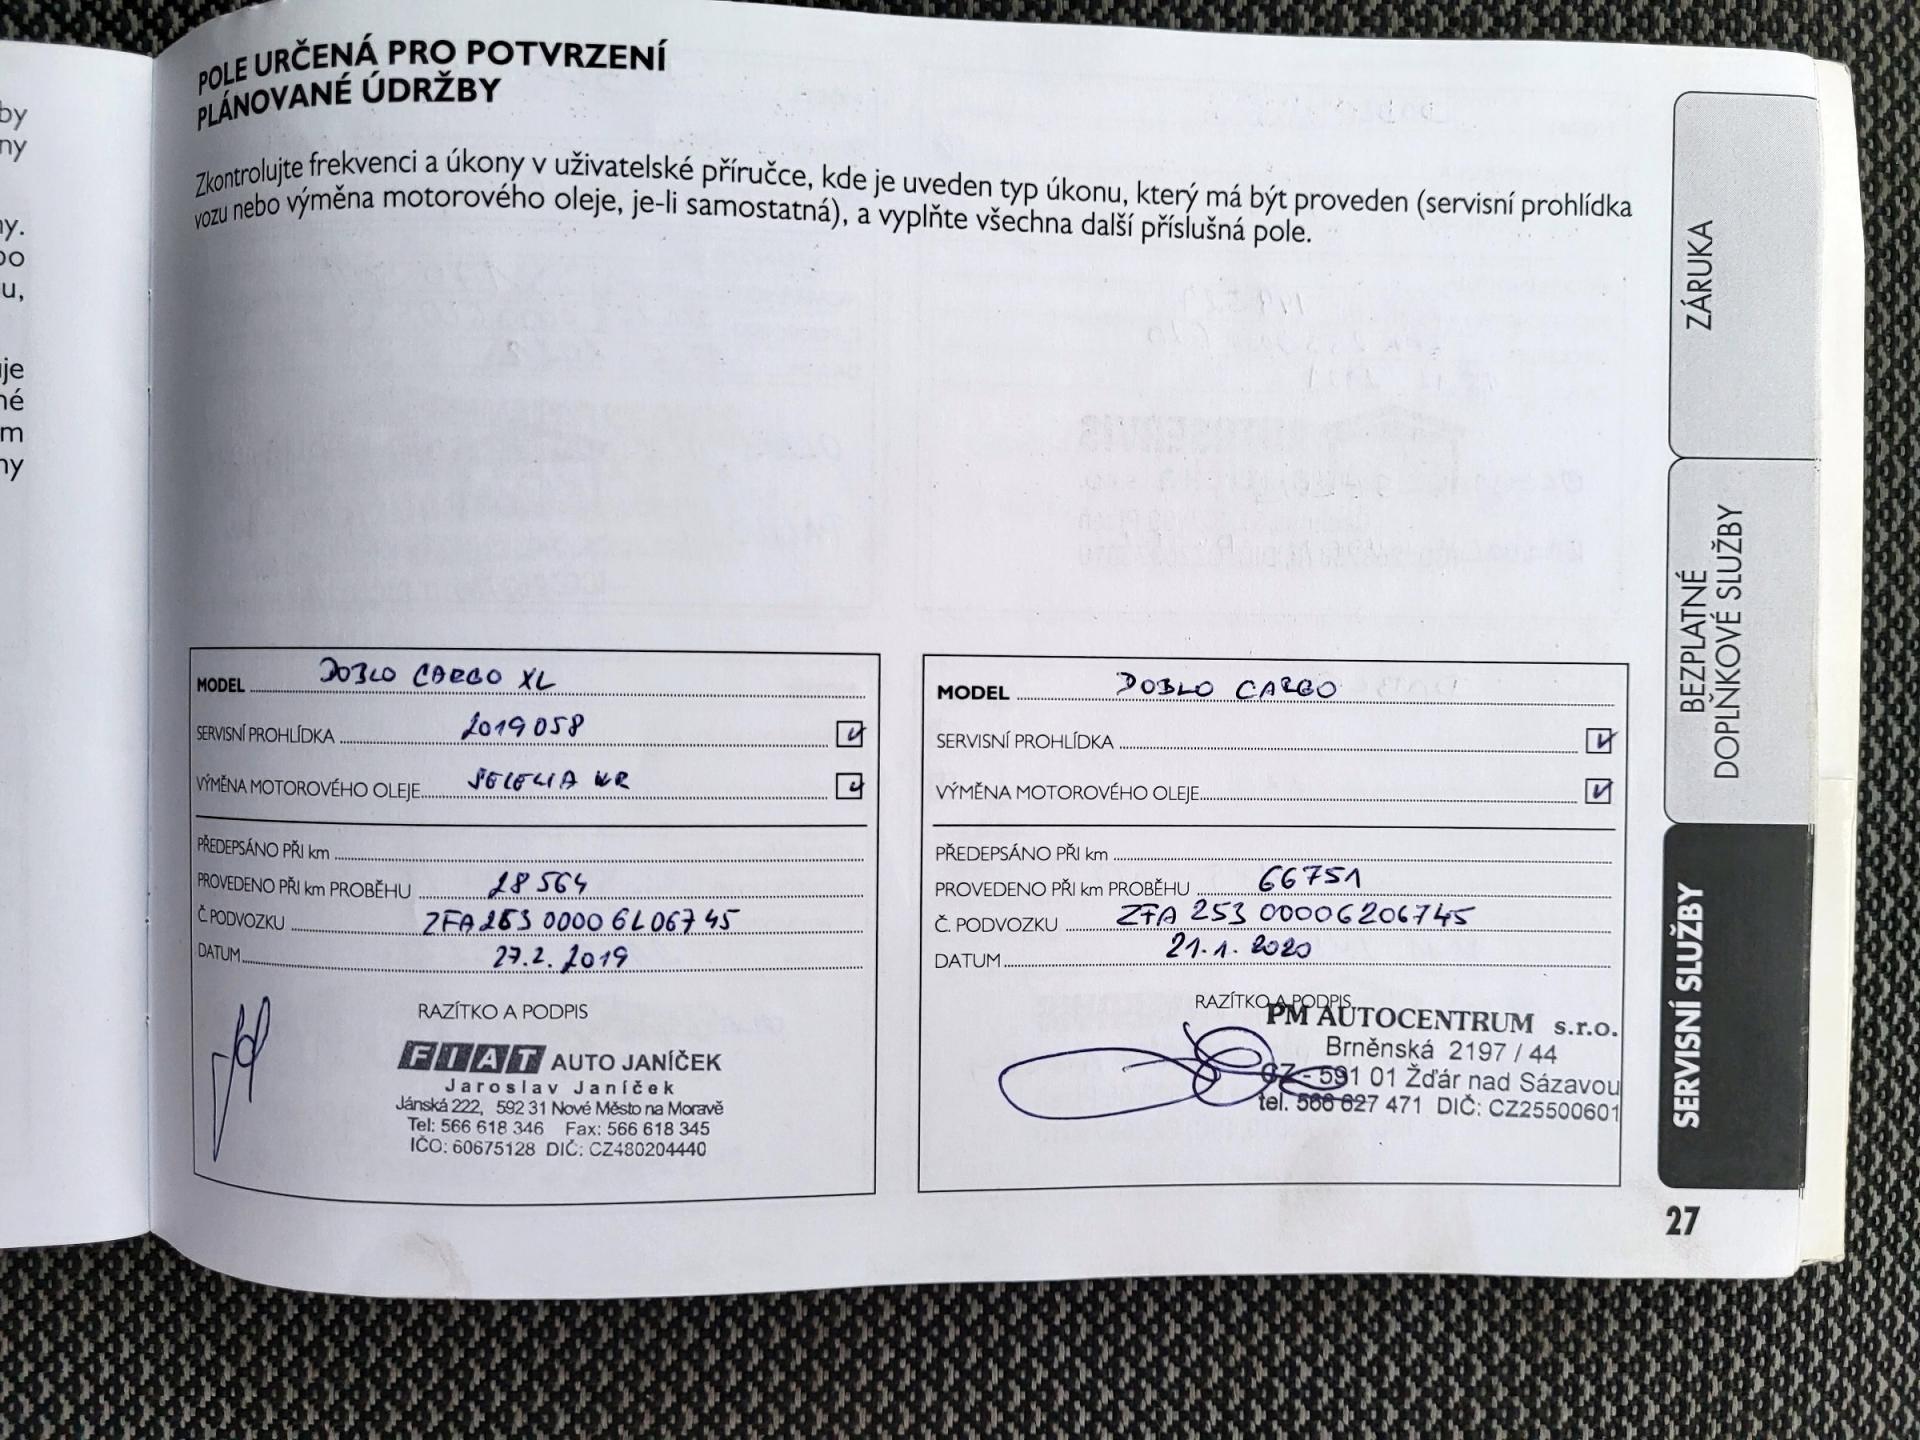 by
ny
ny.
po
u,
uje
né
m
ny
POLE URČENÁ PRO POTVRZENÍ
PLÁNOVANÉ ÚDRŽBY
Zkontrolujte frekvenci a úkony v uživatelské příručce, kde je uveden typ úkonu, který má být proveden (servisní prohlídka
vozu nebo výměna motorového oleje, je-li samostatná), a vyplňte všechna další příslušná pole.
MODEL DOBLO CARGO XL
SERVISNÍ PROHLÍDKA 2019058
VÝMĚNA MOTOROVÉHO OLEJE SELELIA WR
PŘEDEPSÁNO PŘI km
PROVEDENO PŘI km PROBĚHU 28 564
Č. PODVOZKU ZFA 263 0000 6L06745
DATUM 27.2. 2019
RAZÍTKO A PODPIS
FIAT AUTO JANÍČEK
Jaroslav Janíček
Jánská 222, 592 31 Nové Město na Moravě
Tel: 566 618 346 Fax: 566 618 345
IČO: 60675128 DIČ: CZ480204440
MODEL DOBLO CARGO
SERVISNÍ PROHLÍDKA
VÝMĚNA MOTOROVÉHO OLEJE
PŘEDEPSÁNO PŘI km
PROVEDENO PŘI km PROBĚHU 66751
Č. PODVOZKU ZFA 253 00006206745
DATUM 21.1. 2020
RAZÍTKO A PODPIS
PM AUTOCENTRUM s.r.o.
Brněnská 2197 / 44
CZ - 591 01 Žďár nad Sázavou
tel. 566 627 471 DIČ: CZ25500601
ZÁRUKA
BEZPLATNÉ
DOPLŇKOVÉ SLUŽBY
SERVISNÍ SLUŽBY
27